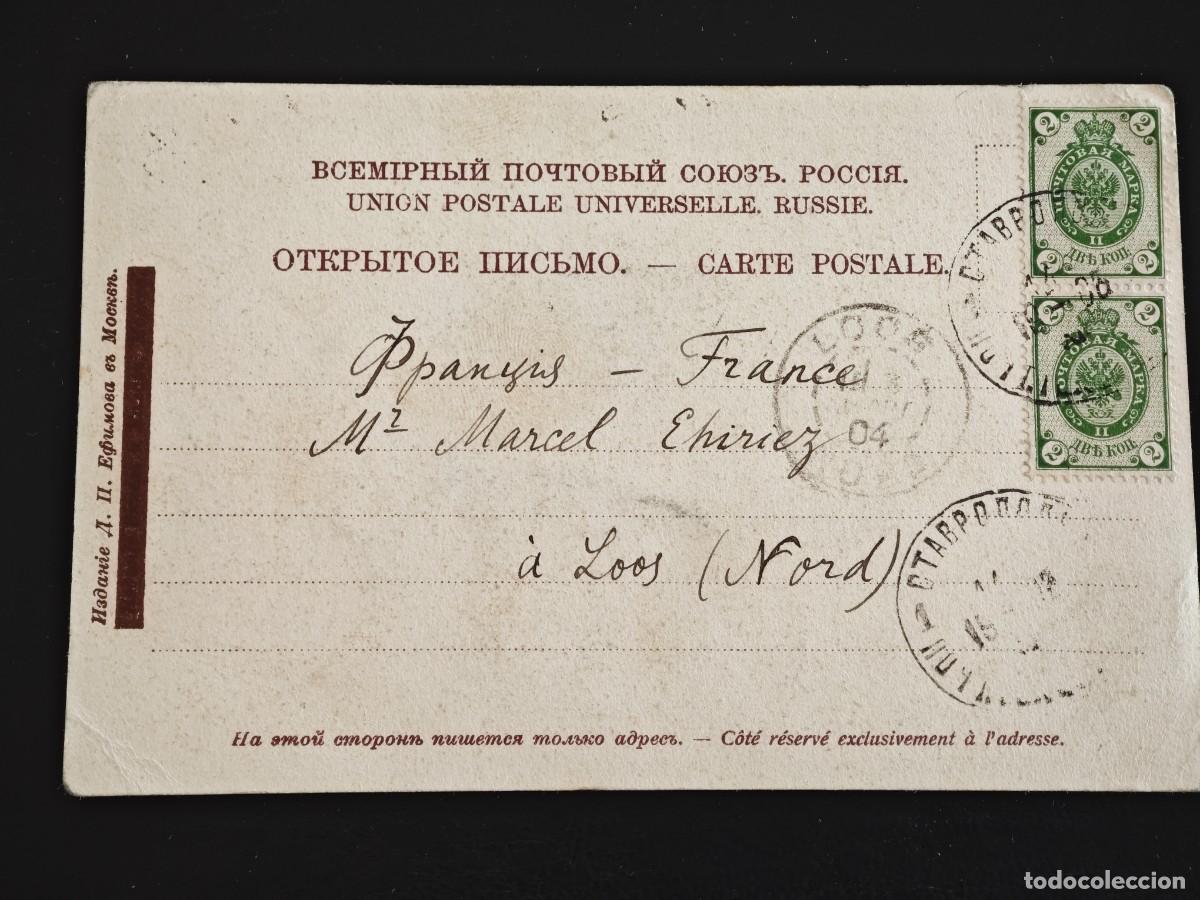 ВСЕМІРНЫЙ ПОЧТОВЫЙ СОЮЗЪ. РОССІЯ.
UNION POSTALE UNIVERSELLE. RUSSIE.
ОТКРЫТОЕ ПИСЬМО. — CARTE POSTALE.
Изданіе Д. П. Ефимова въ Москвѣ.
2 2
ПОЧТОВАЯ МАРКА
II
ДВѢ КОП.
2 2
2 2
ПОЧТОВАЯ МАРКА
II
ДВѢ КОП.
2 2
Франція — France
Mr Marcel Ehiriez
à Loos (Nord)
LOOS
04
СТАВРОПОЛ
На этой сторонѣ пишется только адресъ. — Côté réservé exclusivement à l'adresse.
todocoleccion